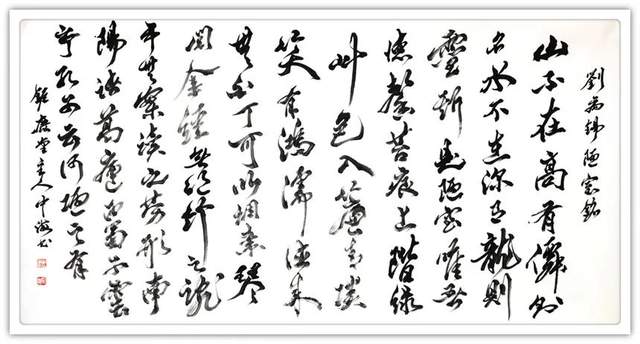 劉禹錫陋室銘
山不在高有僊則
名水不在深有龍則
靈斯是陋室唯吾
惪馨苔痕上階綠
艸色入簾青談
笑有鴻儒往來
無白丁可以調素琴
閱金經無絲竹之亂
耳無案牘之勞形南
陽諸葛廬西蜀子雲
亭孔子云何陋之有
堂主人
書